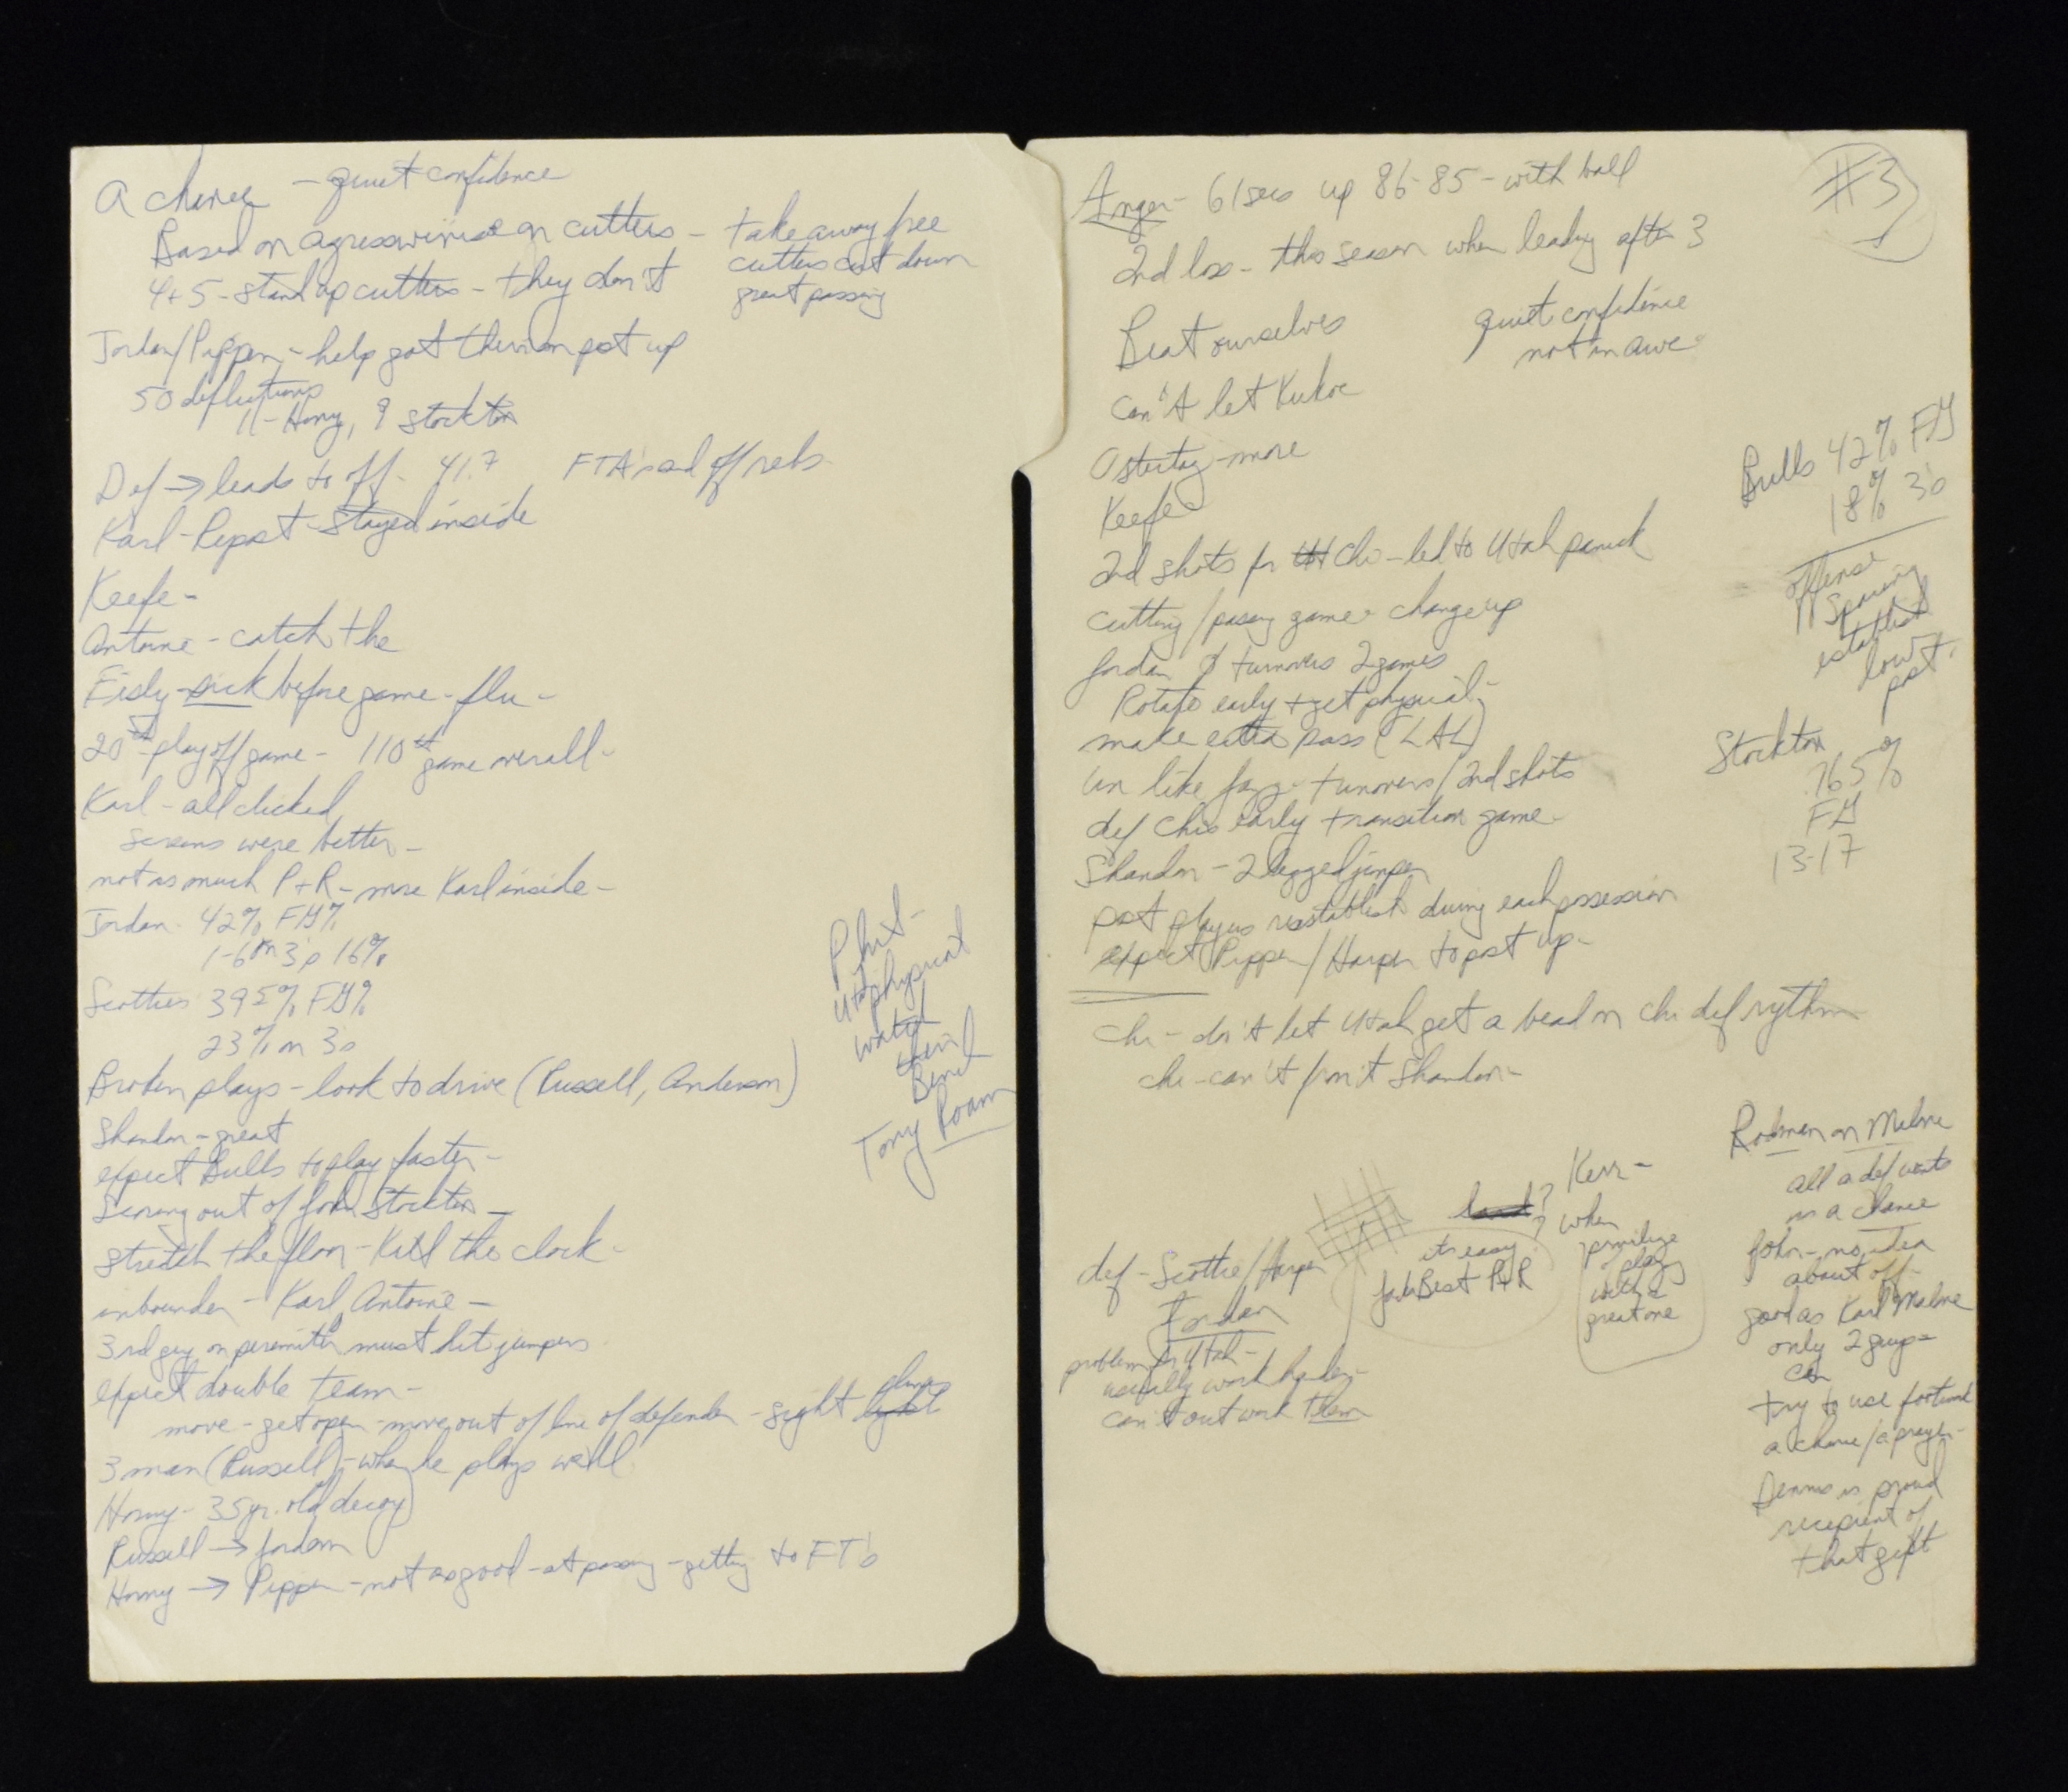 A chance - quiet confidence
Based on agressiveness on cutters - take away free
cutters cut down
great passing
4+5 - stand up cutters - they don't
Jordan/Pippen - help got them on post up
50 deflections
11 - Horny, 9 Stockton
Def → leads to off. 41.7 FTA's and off rebs.
Karl - Repost - stayed inside
Keefe -
Antoine - catch the
Eisly - sick before game - flu -
20th playoff game - 110th game overall -
Karl - all clicked
screens were better -
not as much P+R - more Karl inside -
Jordan 42% FG%
1-6 on 3's 16%
Scotties 395% FG%
23% on 3s
Broken plays - look to drive (Russell, Anderson)
Shandon - great
expect Bulls to play faster -
Scoring out of John Stockton -
Stretch the floor - Kill the clock -
inbounder - Karl, Antoine -
3rd guy on perimiter must hit jumpers
expect double team -
move - get open - move out of line of defender - sight
3 man (Russell) - when he plays well
Horny - 35 yr. old decoy
Russell → Jordan
Horny → Pippen - not as good - at passing - getting to FT's
Phil -
Utah physical
watch
their
Bench
Tony Roam
#3
Anger - 61 secs up 86-85 - with ball
2nd loss - this season when leading after 3
Beat ourselves
quiet confidence
not in awe
Can't let Kukoc
Ostertag - more
Keefe
2nd shots for Chi - led to Utah panick
cutting/passing game - change up
Jordan turnovers 2 games
Rotate early + get physical -
make extra pass (LAL)
un like Jazz - turnovers/2nd shots
def Chis early transition game -
Shandon - 2 legged jumper
post players reestablish during each possession
expect Pippen/Harper to post up -
Chi - don't let Utah get a bead on Chi def rythm
chi - can't front Shandon -
Bulls 42% FG
18% 3s
offense
Spacing
establish
low
post.
Stockton
.765%
FG
13-17
def - Scottie/Harper
Jordan
problem for Utah -
usually work harder -
can't out work them
its easy
Best P+R
Kerr -
when
privilige
play
with a
great one
Rodman on Malone
all a def wants
is a chance
John - no idea
about off -
good as Karl Malone
only 2 guys
can
try to use footwork
a chance/a prayer -
Dennis is proud
recipient of
that gift